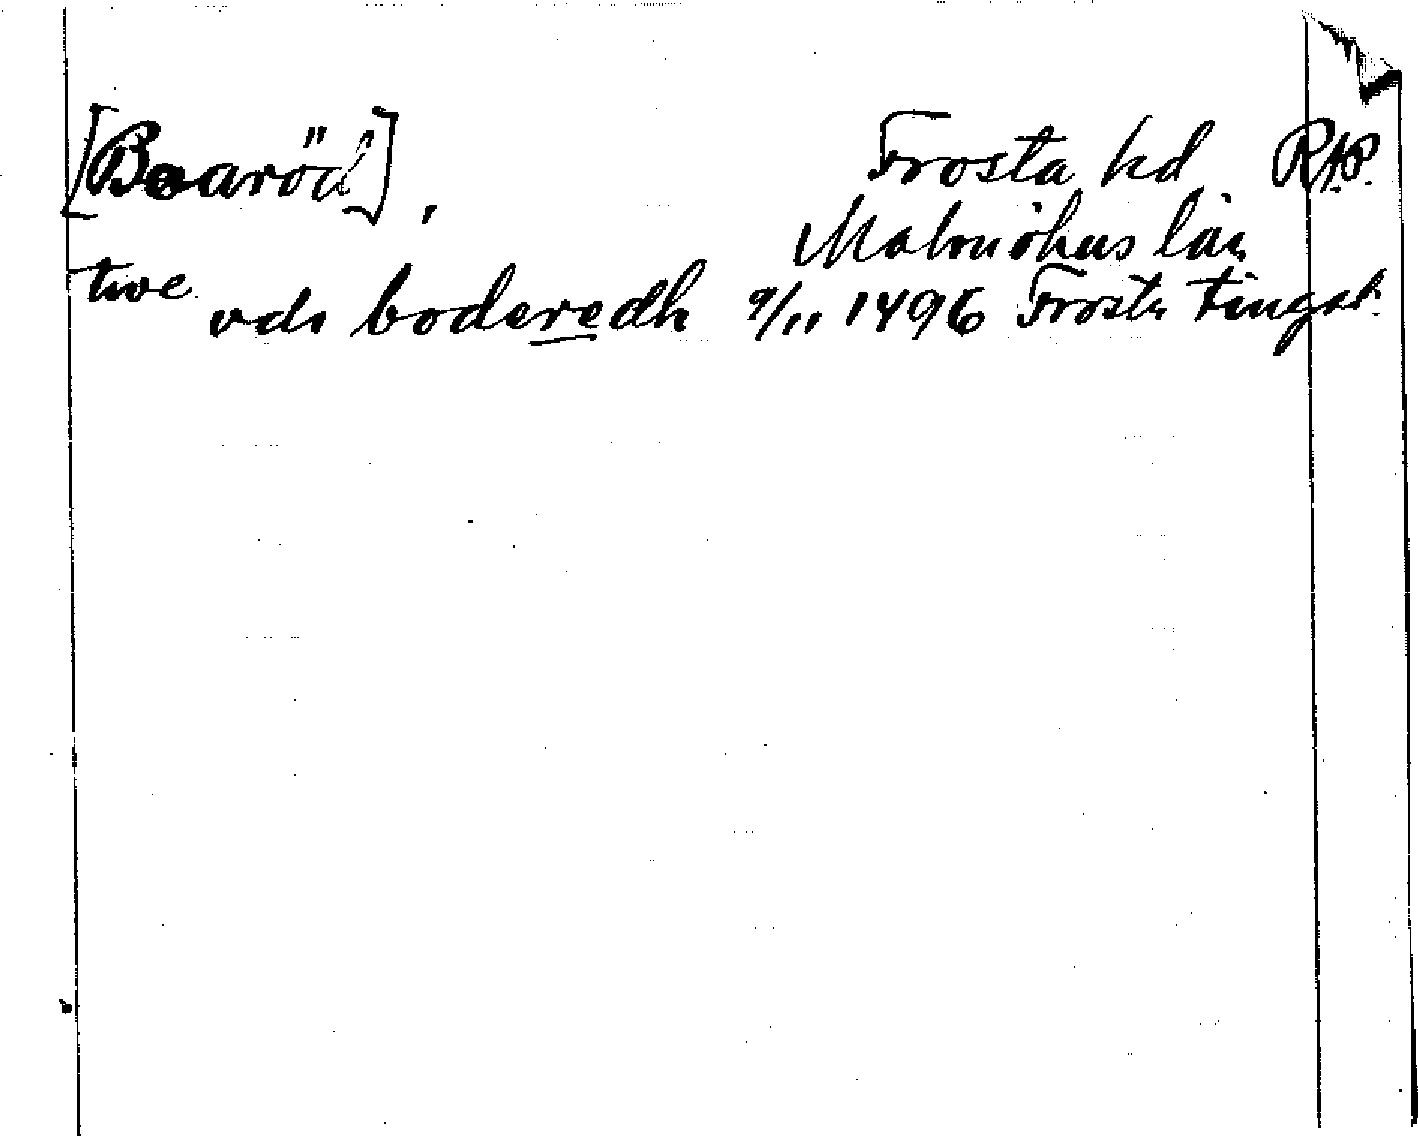 [Boaröd], Frosta hd RAP.
Malmöhus län
twe vdi boderedh 9/11 1496 Frosta tingsl.